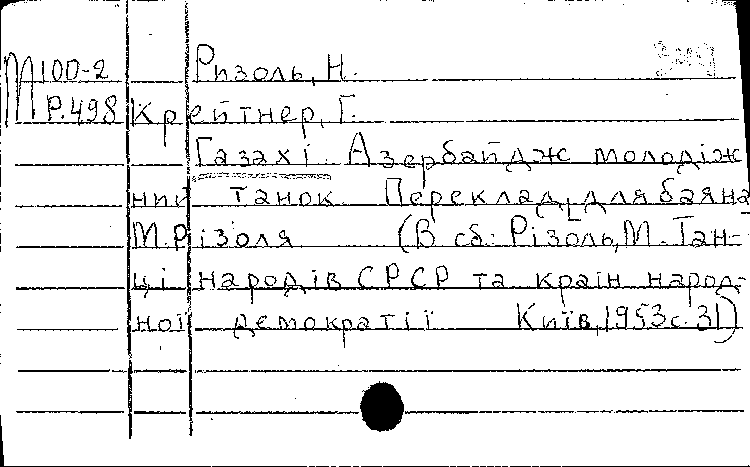 М100-2 Ризоль, Н.
Р.498 Крейтнер, Г.
Газахі. Азербайдж молодіж
ний танок Переклад для баяна
М.Різоля (В сб: Різоль, М. Тан-
ці народів СРСР та країн народ-
ної демократії Київ, 1953 с. 31)